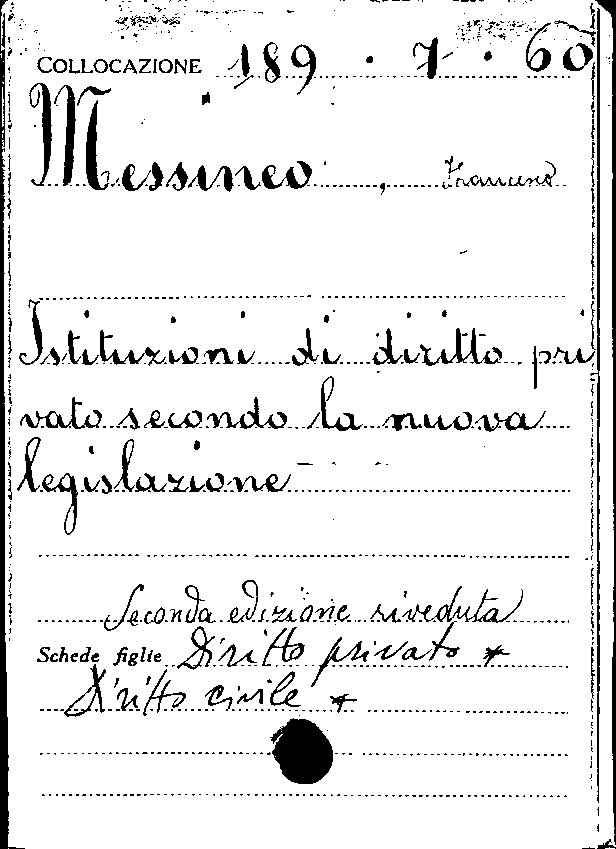 COLLOCAZIONE 189 . 7 . 60
Messineo , Francesco
Istituzioni di diritto pri
vato secondo la nuova
legislazione
Seconda edizione riveduta
Schede figlie Diritto privato *
Diritto civile *